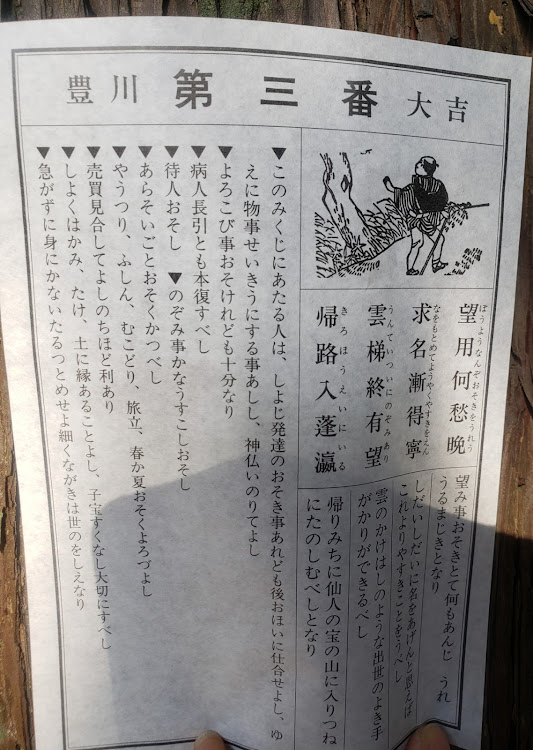 豊川 第三番 大吉
望用何愁晩
ぼうようなんぞおそきをうれう
求名漸得寧
なをもとめてようやくやすきをえん
雲梯終有望
うんていついにのぞみあり
帰路入蓬瀛
きろほうえいにいる
望み事おそきとて何もあんじ うれ
うるまじきとなり
しだいしだいに名をあげんと思えば
これよりやすきことをうべし
雲のかけはしのような出世のよき手
がかりができるべし
帰りみちに仙人の宝の山に入りつね
にたのしむべしとなり
▼このみくじにあたる人は、しよじ発達のおそき事あれども後おほいに仕合せよし、ゆ
えに物事せいきうにする事あしし、神仏いのりてよし
▼よろこび事おそけれども十分なり
▼病人長引とも本復すべし
▼待人おそし ▼のぞみ事かなうすこしおそし
▼あらそいごとおそくかつべし
▼やうつり、ふしん、むこどり、旅立、春か夏おそくよろづよし
▼売買見合してよしのちほど利あり
▼しよくはかみ、たけ、土に縁あることよし、子宝すくなし大切にすべし
▼急がずに身にかないたるつとめせよ細くながきは世のをしえなり